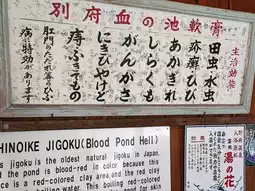 別府血の池軟膏
主治効能
田虫水虫
疥癬ひび
あかぎれ
しらくも
がんがさ
にきびやけど
痔ふきでもの
肛門のただれ等のひふ
病に特効があります
HINOIKE JIGOKU(Blood Pond Hell)
is jigoku is the oldest natural jigoku in Japan,
d the pond is blood-red in color because this
ce is a red-colored clay area and the red clay
boiling water. This boiling red-colored
湯の花